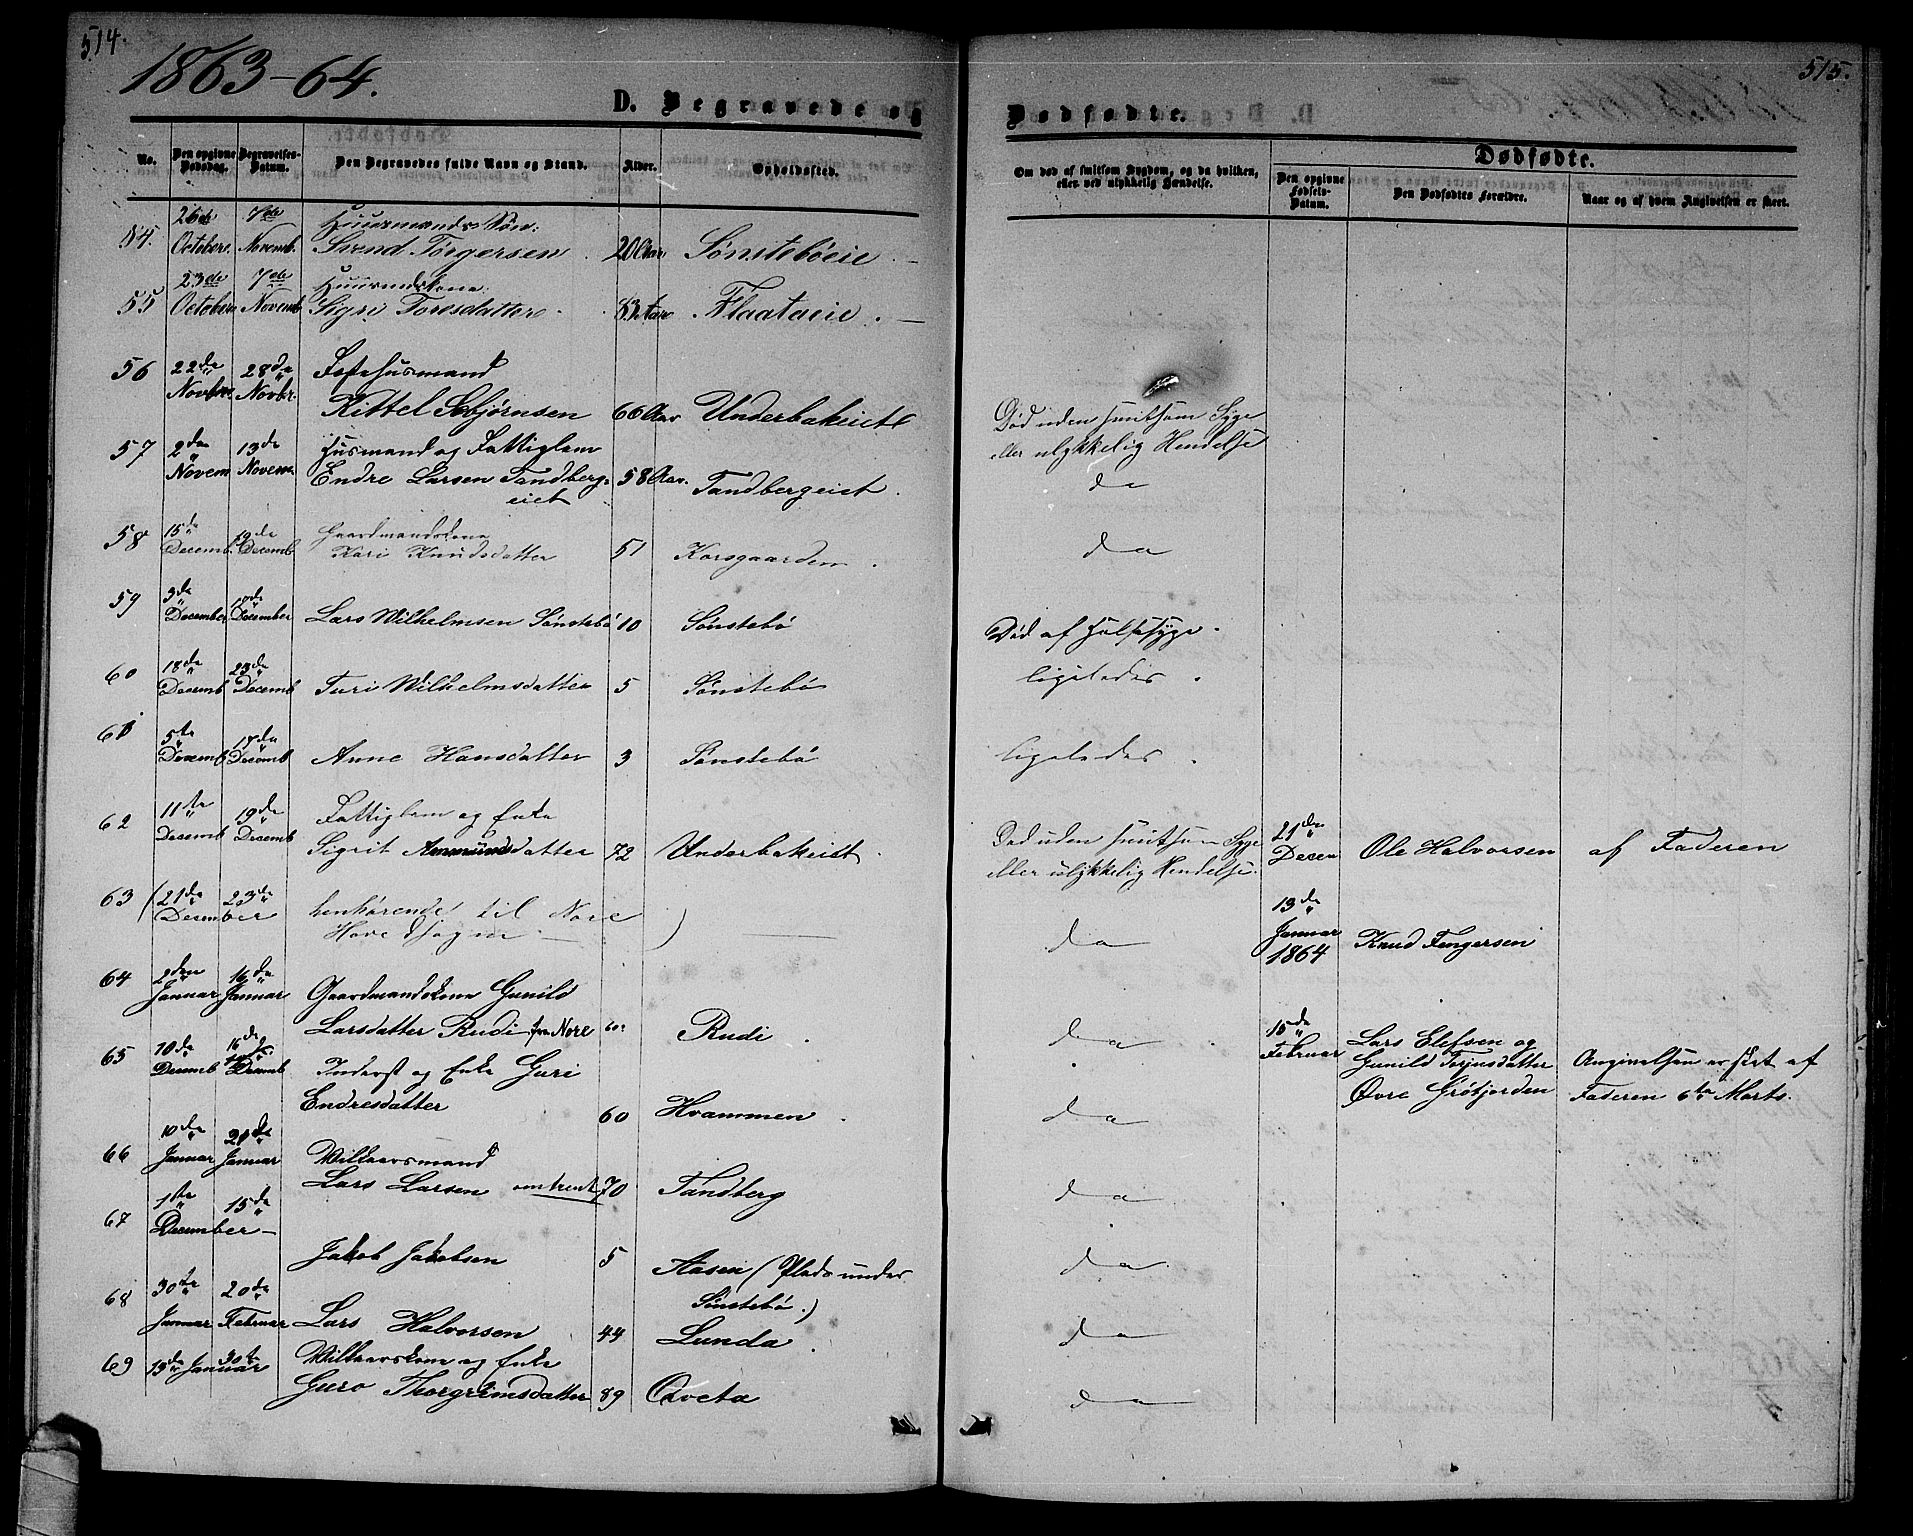 514.
1863-64.
D. Begravede og
No.
Den opgivne Dødsdag.
Begravelses-Datum.
Den Begravedes fulde Navn og Stand.
Alder.
Opholdssted.
26de 7de Huusmands Søn:
54. October. Novemb. Svend Torgersen 20 Aar Sønstebøeie
23de 7de
55 October Novemb Sigri Toresdatter 83 Aar Flaataeie
56 22de 28de Husmand
Novbr Novbr. Kittel Asbjørnsen 66 Aar Underbakeiet
57 2den 13de Husmand og Fattiglem
Novem Novem Endre Larsen Tandberg-
eiet 58 Aar. Tandbergeiet
58 15de 19de Gaardmandskone
Decemb. Decemb Kari Knudsdatter 51 Korsgaarden
59 3de
December December Lars Wilhelmsen Sønstebø 10 Sønstebø
60 18de 23de
Decemb Decemb Turi Wilhelmsdatter 5 Sønstebø
61 5te 17de
Decemb Decemb Anne Hansdatter 3 Sønstebø
62 11te 19de Fattiglem og Enke
Decemb Decemb Sigrit Ammundsdatter 72 Underbakeiet
63 (21de 23de
December henhørende til Nore
Hovedsogn )
64 2den 16de
Januar Januar Gaardmandskone Gunild
Larsdatter Rudi fra Nore 60 Rudi
65 10de 16de
Decemb Decemb Inderst og Enke Guri
Endresdatter 60 Hvammen
66 10de 21de
Januar Januar Vilkaarsmand
Lars Larsen omtrent 70 Tandberg
67 1ste 15de
December
Jakob Jakobsen 5 Aasen (Plads under
Sønstebø.)
68 30te 20de
Januar Februar Lars Halvorsen 44 Lunda
69 13de Januar 30te Vilkaarskone og Enke
Guro Thorgrimsdatter 89 Qveta
515.
Dødfødte.
Om død af smitsom Sygdom, og da hvilken, eller ved ulykkelig Hændelse.
Dødfødte.
Den opgivne Fødsels-Datum.
Den Dødfødtes Forældre.
Naar og af hvem Angivelsen er skeet.
Død uden smitsom Syge
eller ulykkelig Hendelse
do
do
Død af Halssyge.
ligeledes.
ligeledes.
Død uden smitsom Syge
eller ulykkelig Hendelse.
21de
Decem Ole Halvorsen af Faderen
do
13de
Januar
1864 Knud Tengersen
do
15de
Februar Lars Elefsen og
Gunild Torjusdatter
Øvre Grøtjorden
Angivelsen er skeet af
Faderen 6te Marts.
do
do
do
do
do